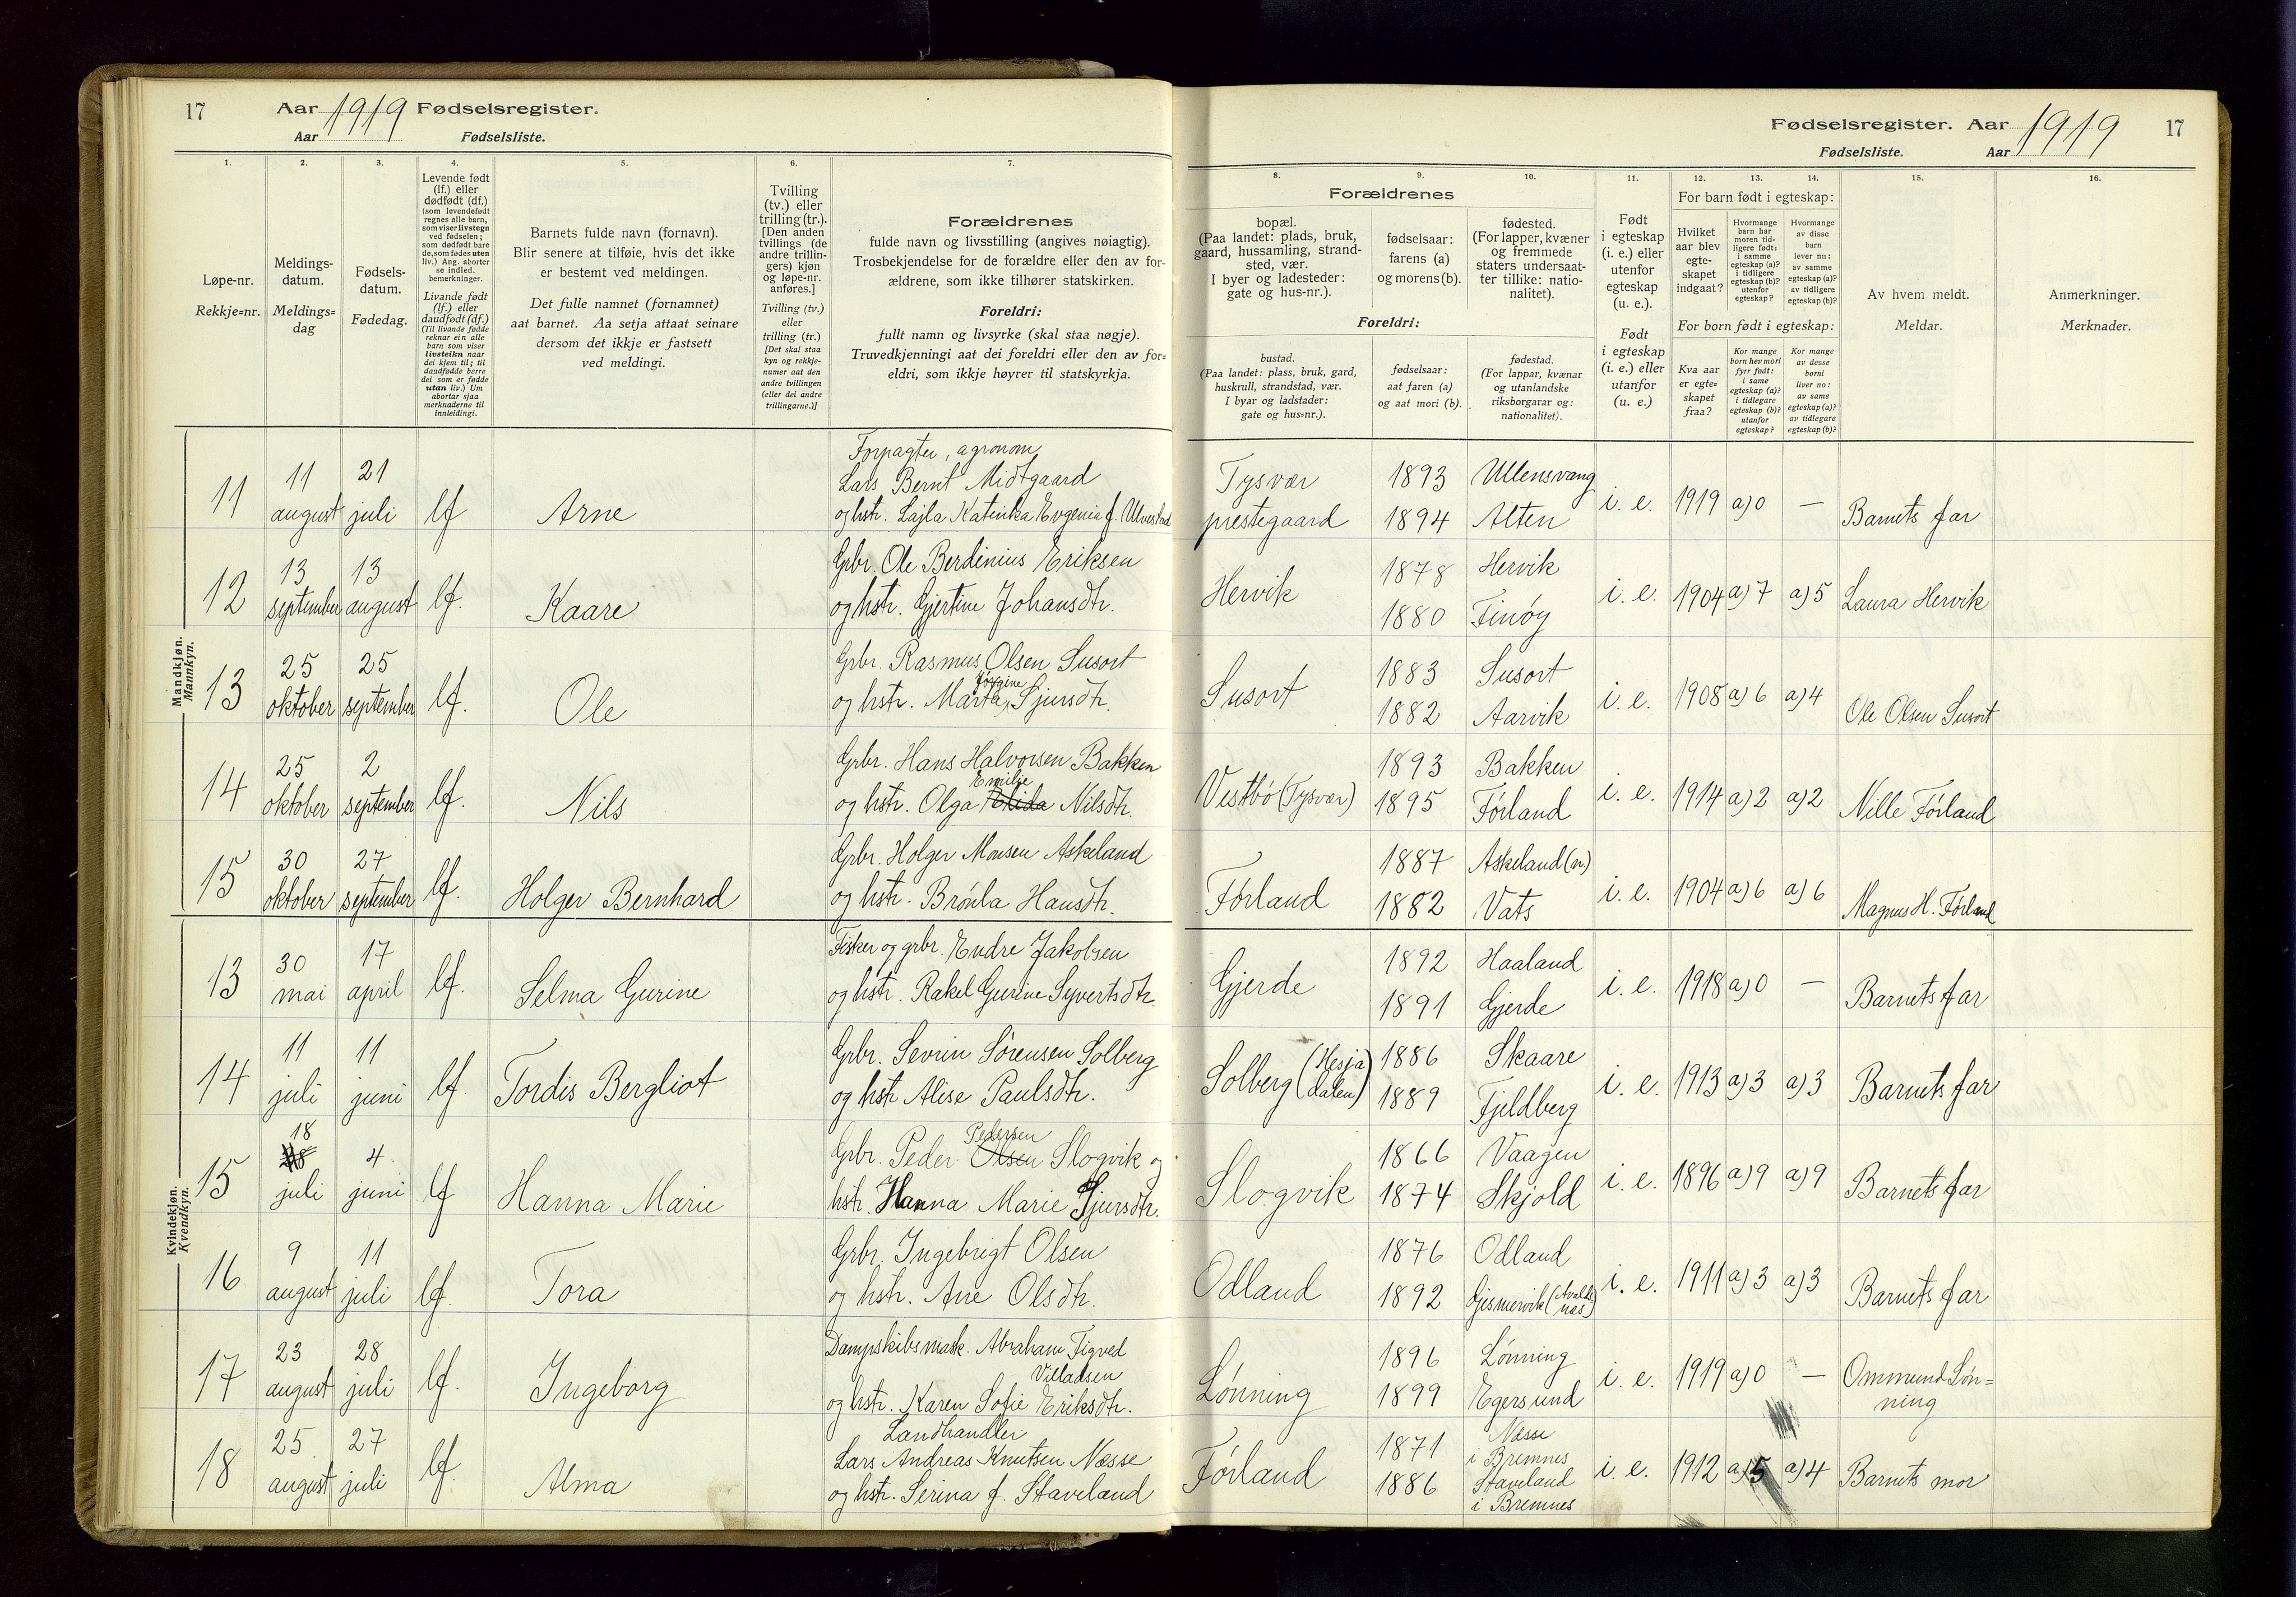 17 Aar 1919 Fødselsregister.
Aar Fødselsliste.
Fødselsregister. Aar 1919 17
Fødselsliste. Aar
1. 2. 3. 4. 5. 6. 7.
Løpe-nr.
Rekkje=nr.
Meldings-
datum.
Meldings=
dag
Fødsels-
datum.
Fødedag.
Levende født
(lf.) eller
dødfødt (df.)
(som levendefødt
regnes alle barn,
som viser livstegn
ved fødselen;
som dødfødt bare
de, som fødes uten
liv.) Ang. aborter
se indled.
bemerkninger.
Livande født
(lf.) eller
daudfødt (df.)
(Til livande fødde
reknar ein alle
barn som viser
livsteikn naar
dei kjem til; til
daudfødde berre
dei som er fødde
utan liv.) Um
abortar sjaa
merknaderne til
innleidingi.
Barnets fulde navn (fornavn).
Blir senere at tilføie, hvis det ikke
er bestemt ved meldingen.
Det fulle namnet (fornamnet)
aat barnet. Aa setja attaat seinare
dersom det ikkje er fastsett
ved meldingi.
Tvilling
(tv.) eller
trilling (tr.).
[Den anden
tvillings (de
andre trillin-
gers) kjøn
og løpe-nr.
anføres.]
Tvilling (tv.)
eller
trilling (tr.)
[Det skal staa
kyn og rekkje-
numer aat den
andre tvillingen
(eller dei andre
trillingarne.)]
Forældrenes
fulde navn og livsstilling (angives nøiagtig).
Trosbekjendelse for de forældre eller den av for-
ældrene, som ikke tilhører statskirken.
Foreldri:
fullt namn og livsyrke (skal staa nøgje).
Truvedkjenningi aat dei foreldri eller den av for=
eldri, som ikkje høyrer til statskyrkja.
8. 9. 10. 11. 12. 13. 14. 15. 16.
Forældrenes
bopæl.
(Paa landet: plads, bruk,
gaard, hussamling, strand-
sted, vær.
I byer og ladesteder:
gate og hus-nr.).
fødselsaar:
farens (a)
og morens (b).
fødested.
(For lapper, kvæner
og fremmede
staters undersaat-
ter tillike: natio-
nalitet).
Foreldri:
bustad.
(Paa landet: plass, bruk, gard,
huskrull, strandstad, vær.
I byar og ladstader:
gate og hus=nr.).
fødselsaar:
aat faren (a)
og aat mori (b).
fødestad.
(For lappar, kvænar
og utanlandske
riksborgarar og:
nationalitet).
Født
i egteskap
(i. e.) eller
utenfor
egteskap
(u. e.).
Født
i egteskap
(i. e.) eller
utanfor
(u. e.)
For barn født i egteskap:
Hvilket
aar blev
egte-
skapet
indgaat?
Hvormange
barn har
moren tid-
ligere født:
i samme
egteskap (a)?
i tidligere
egteskap (b)?
utenfor
egteskap?
Hvormange
av disse
barn
lever nu:
av samme
egteskap (a)?
av tidligere
egteskap (b)?
For born født i egteskap:
Kva aar
er egte=
skapet
fraa?
Kor mange
born hev mori
fyrr født:
i same
egteskap (a)?
i tidlegare
egteskap (b)?
utanfor
egteskap?
Kor mange
av desse
borni
liver no:
av same
egteskap (a)?
av tidlegare
egteskap (b)?
Av hvem meldt.
Meldar.
Anmerkninger.
Merknader.
Mandkjøn.
Mannkyn.
11 11 august 21 juli lf Arne Forpagter, agronom
Lars Bernt Midtgaard
og hstr. Lajla Katinka Evgenia f. Ulvestad
Tysvær prestegaard 1893 1894 Ullensvang Alten i. e. 1919 a) 0 — Barnets far
12 13 september 13 august lf. Kaare Grbr. Ole Berdinius Eriksen
og hstr. Gjertine Johansdtr.
Hervik 1878 1880 Hervik Finöy i. e. 1904 a) 7 a) 5 Laura Hervik
13 25 oktober 25 september lf. Ole Grbr. Rasmus Olsen Susort
og hstr. Marta Jorgine Sjursdtr.
Susort 1883 1882 Susort Aarvik i. e. 1908 a) 6 a) 4 Ole Olsen Susort
14 25 oktober 2 september lf. Nils Grbr. Hans Halvorsen Bakken
og hstr. Olga Emilie Nilsdtr.
Vestbö (Tysvær) 1893 1895 Bakken Förland i. e. 1914 a) 2 a) 2 Nille Förland
15 30 oktober 27 september lf. Holger Bernhard Grbr. Holger Monsen Askeland
og hstr. Brönla Hansdtr.
Förland 1887 1882 Askeland (n.) Vats i. e. 1904 a) 6 a) 6 Magnus H. Förland
Kvindekjøn.
Kvendkyn.
13 30 mai 17 april lf. Selma Gurine Fisker og grbr. Endre Jakobsen
og hstr. Rakel Gurine Syvertsdtr.
Gjerde 1892 1891 Haaland Gjerde i. e. 1918 a) 0 — Barnets far
14 11 juli 11 juni lf. Tordis Bergliot Grbr. Sevrin Sörensen Solberg
og hstr Alise Paulsdtr.
Solberg (Hesjadalen) 1886 1889 Skaare Fjeldberg i. e. 1913 a) 3 a) 3 Barnets far
15 18 juli 4 juni lf Hanna Marie Grbr. Peder Pedersen Olsen Slogvik og
hstr. Hanna Marie Sjursdtr.
Slogvik 1866 1874 Vaagen Skjold i. e. 1896 a) 9 a) 9 Barnets far
16 9 august 11 juli lf. Tora Grbr. Ingebrigt Olsen
og hstr. Ane Olsdtr.
Odland 1876 1892 Odland Gismervik (Avaldsnæs) i. e. 1911 a) 3 a) 3 Barnets far
17 23 august 28 juli lf. Ingeborg Dampskibsmask. Abraham Tigved
Villadsen
og hstr. Karen Sofie Eriksdtr.
Lönning 1896 1899 Lönning Egersund i. e. 1919 a) 0 — Ommund Lön=
ning
18 25 august 27 juli lf. Alma Landhandler
Lars Andreas Knutsen Næsse
og hstr. Serina f. Staveland
Förland 1871 1886 Næsse i Bremnes Staveland i Bremnes i. e. 1912 a) 5 a) 4 Barnets mor